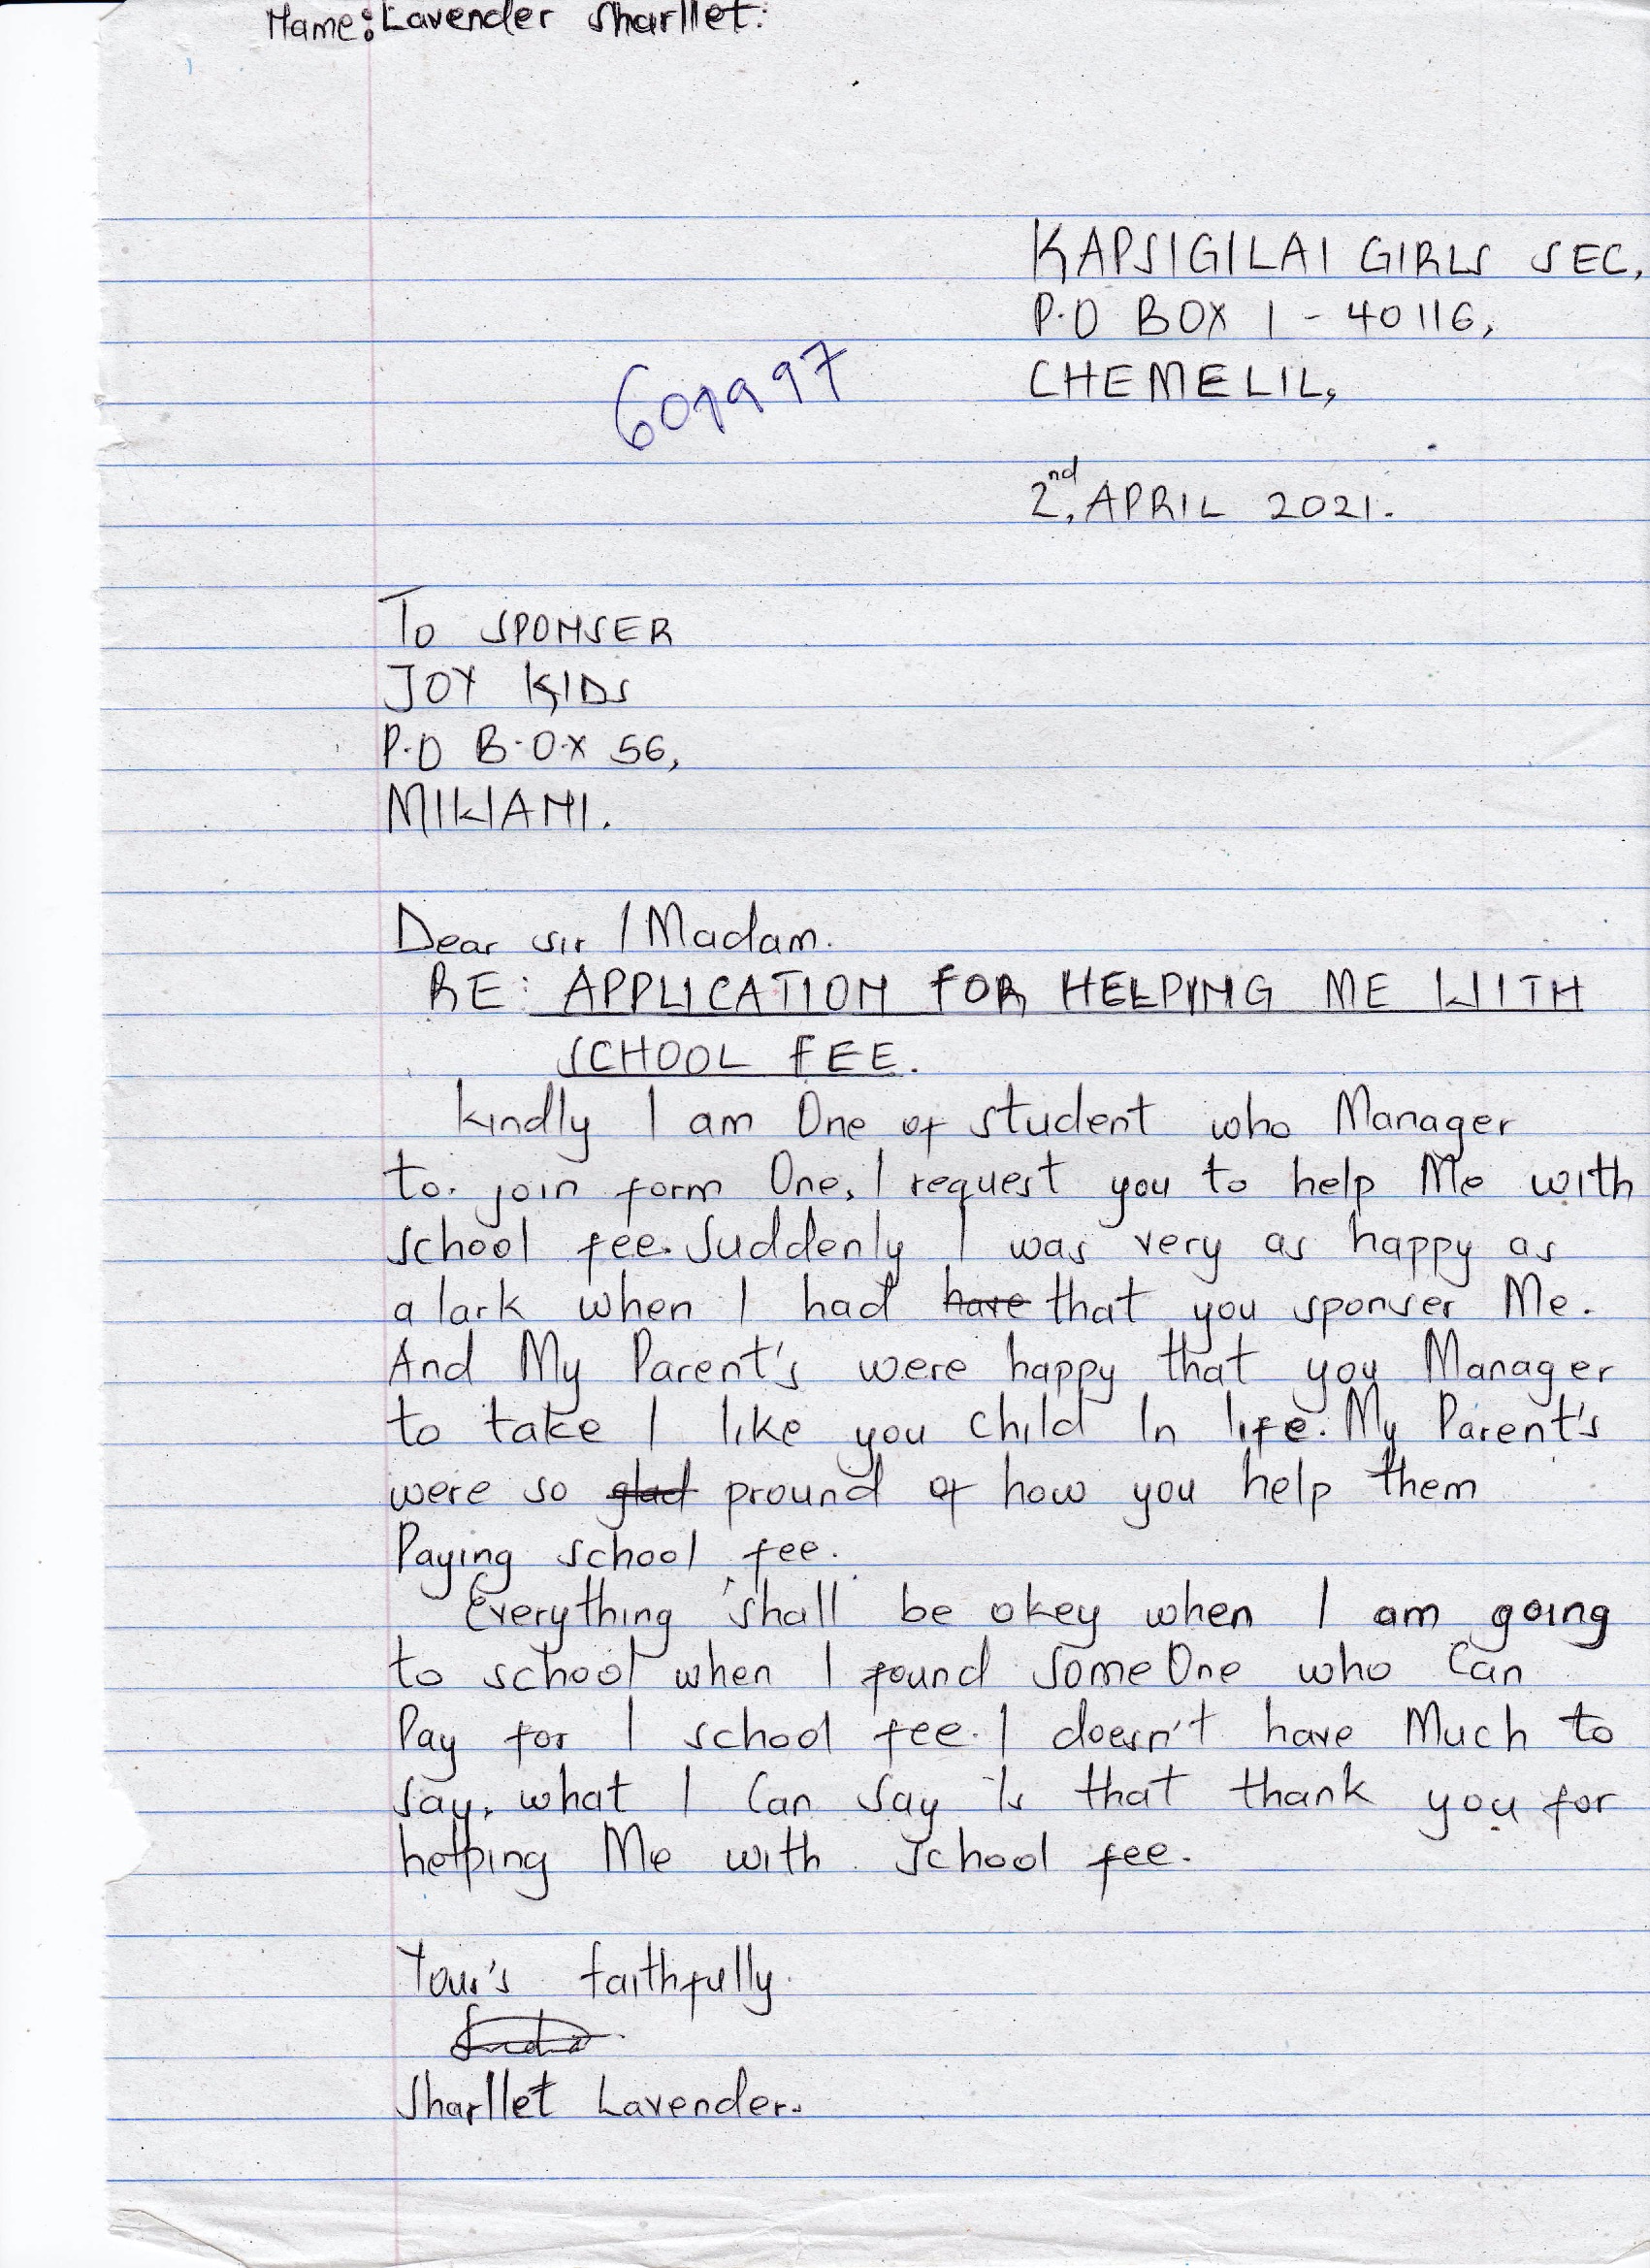 Name: Lavender Sharllet.
KAPSIGILAI GIRLS SEC,
P.O BOX 1 - 40116,
601997
CHEMELIL,
2nd, APRIL 2021.
To SPONSER
JOY KIDS
P.O B.O.X 56,
MIWANI.
Dear sir / Madam.
RE: APPLICATION FOR HELPING ME WITH
SCHOOL FEE.
kindly I am One of student who Manager
to. join form One, I request you to help Me with
school fee. Suddenly I was very as happy as
a lark when I had have that you sponser Me.
And My Parent's were happy that you Manager
to take I like you child In life. My Parent's
were so glad pround of how you help them
Paying school fee.
Everything shall be okey when I am going
to school when I found SomeOne who Can
Pay for I school fee. I doesn't have Much to
say, what I Can say Is that thank you for
helping Me with school fee.
Your's faithfully.
Sharllet Lavender.